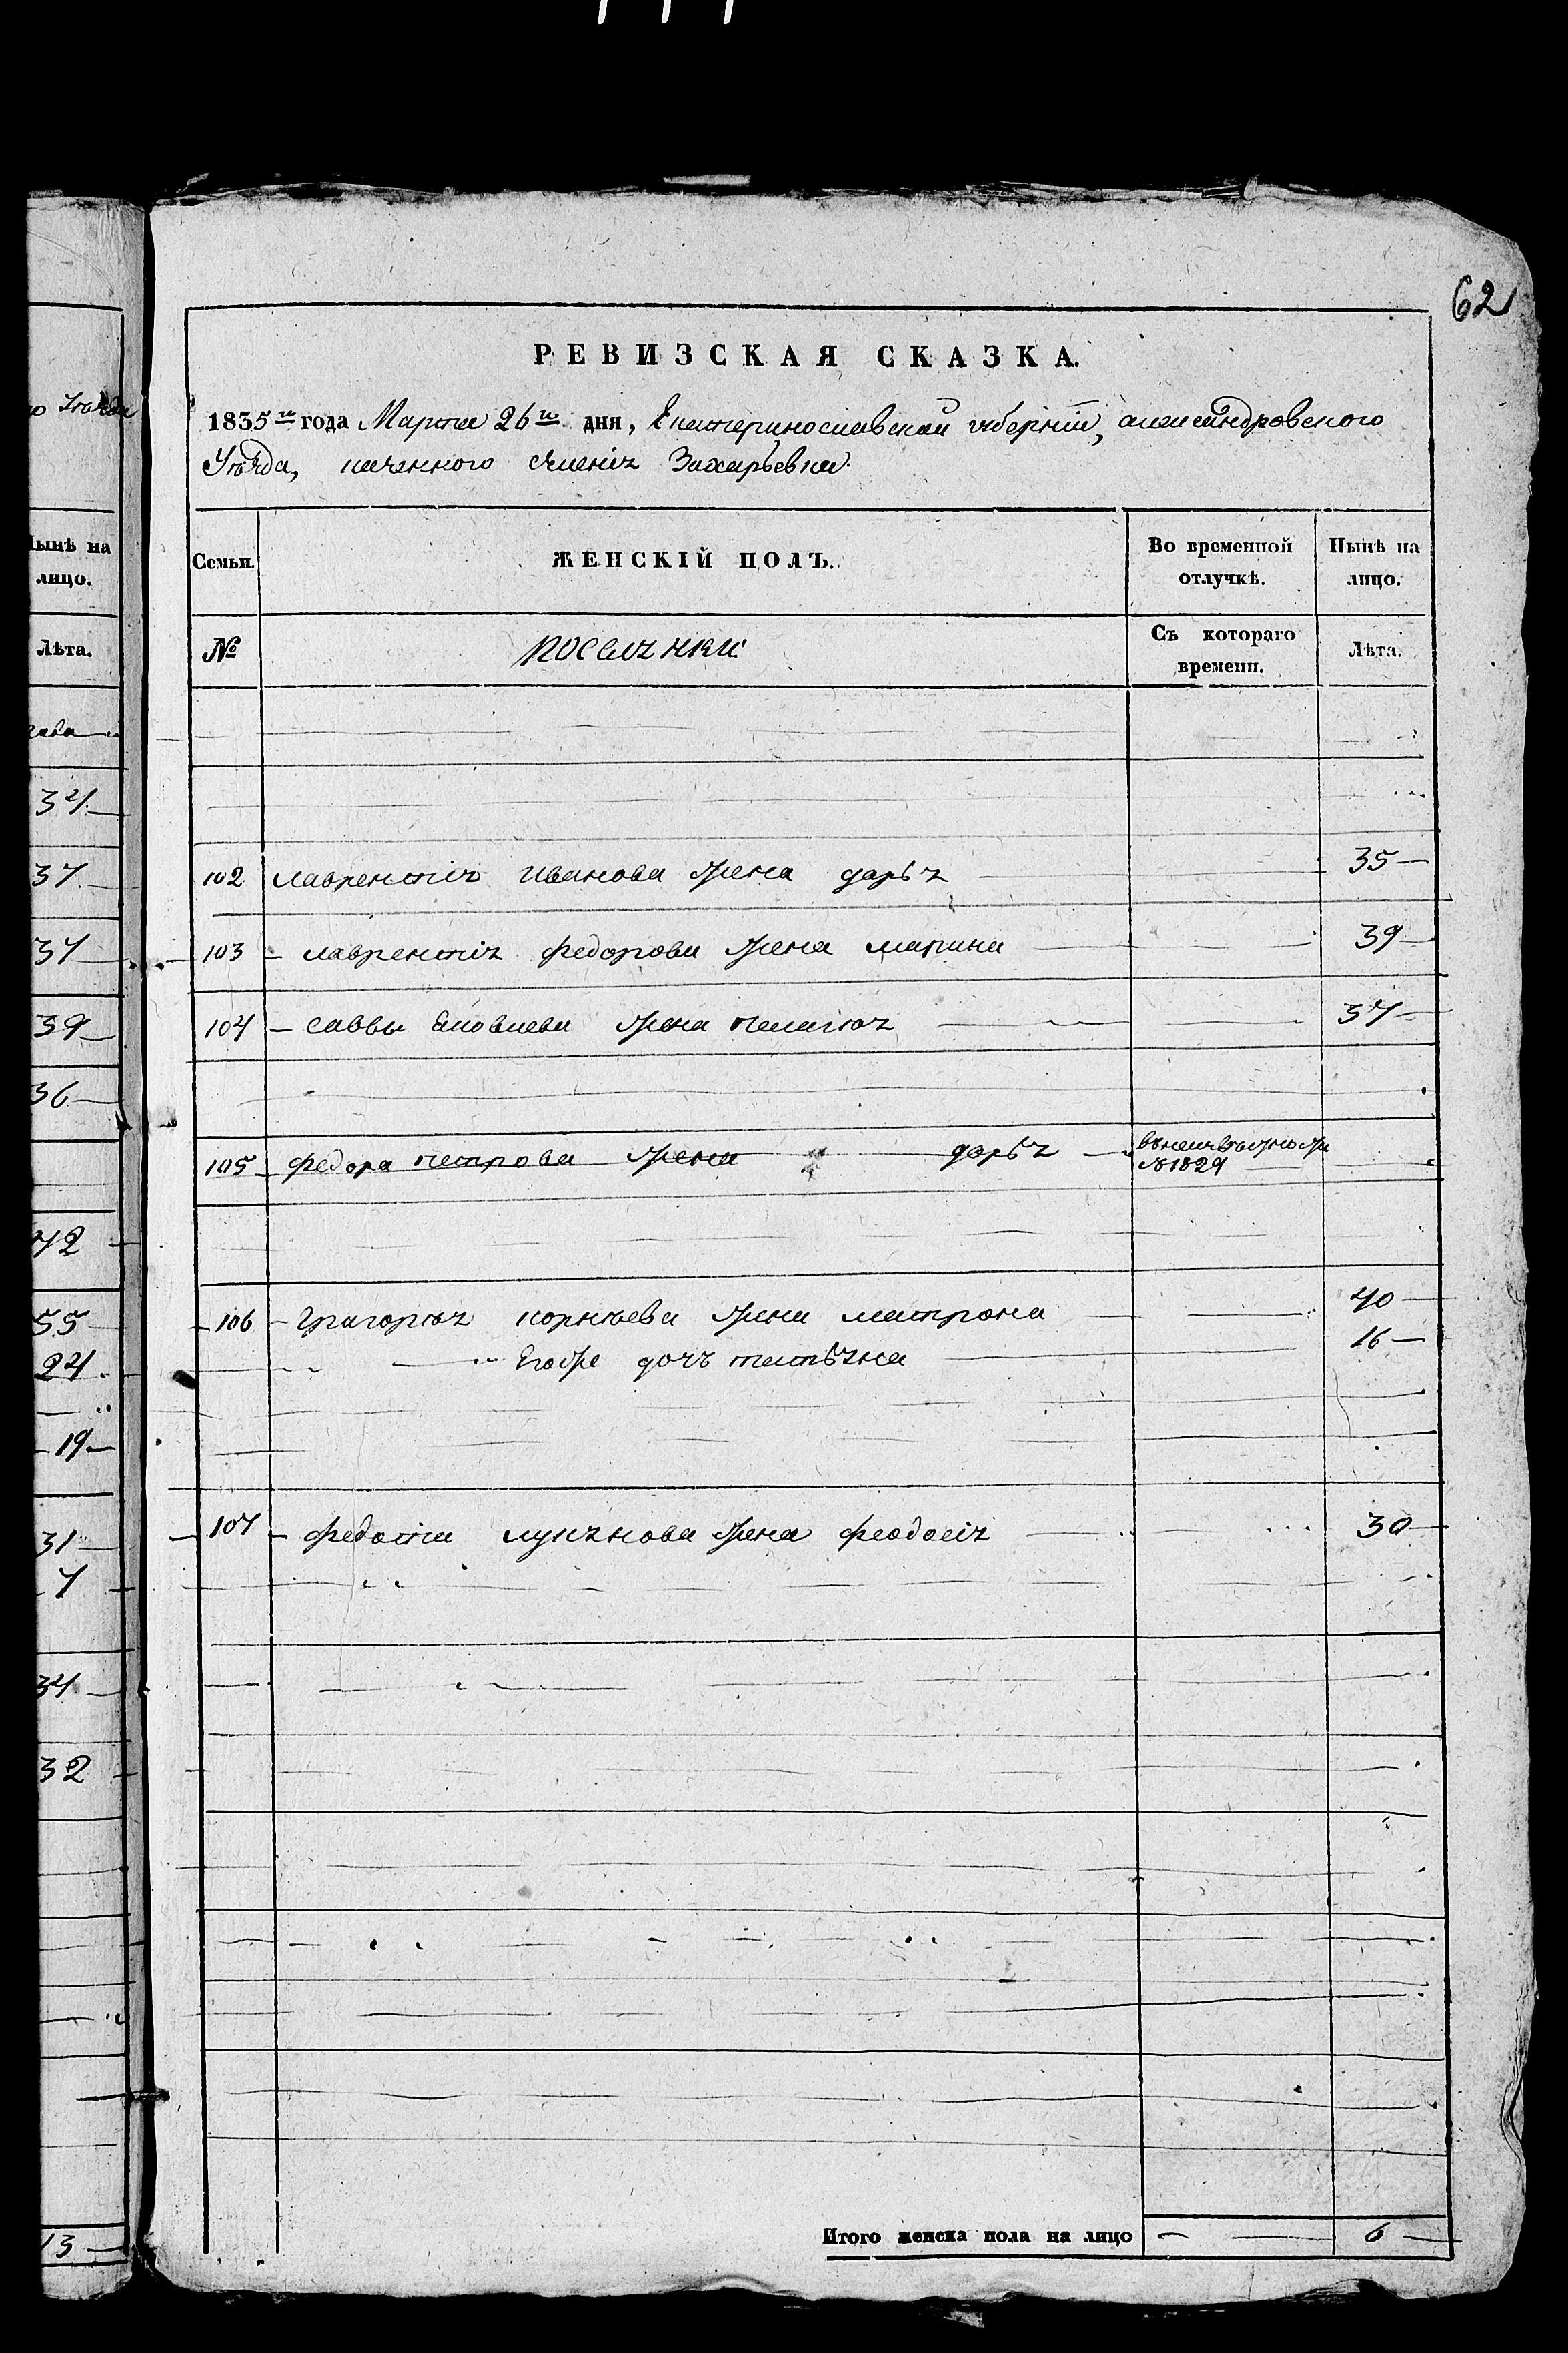 62
РЕВИЗСКАЯ СКАЗКА.
1835го года Марта 26го дня, Екатеринославской губернiи, александровского
Уѣзда, казенного селенiя Захарьевки.
Семьи.
ЖЕНСКIЙ ПОЛЪ.
Во временной отлучкѣ.
Нынѣ на лицо.
№
поселянки
Съ котораго времени.
Лѣта.
102 лаврентiя Иванова жена дарья 35
103 лаврентiя федорова жена марина 39
104 саввы Яковлева жена пелагея 37
105 федора петрова жена дарья 1829
106 Григорiя корнѣева жена матрона 40
Егоже дочь татьяна 16
107 федота лукянова жена феодосiя 30
Итого женска пола на лицо 6
ѣзда
Нынѣ на
лицо.
Лѣта.
34
37
37
39
36
42
55
24
19
31
7
34
32
13